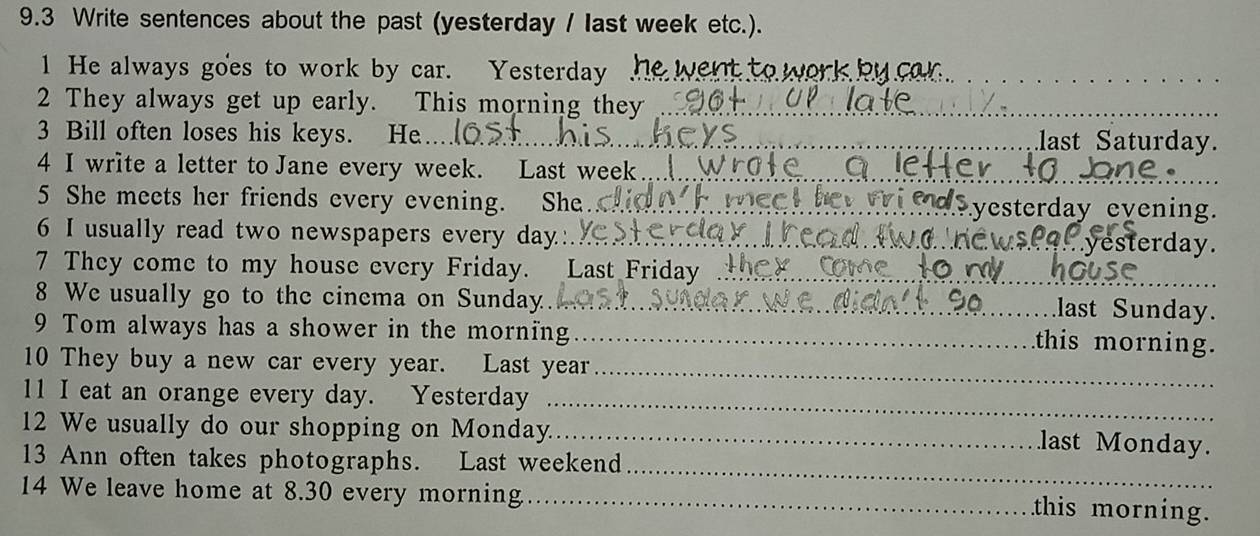 9.3 Write sentences about the past (yesterday / last week etc.).
1 He always goes to work by car. Yesterday he went to work by car.
2 They always get up early. This morning they got up late
3 Bill often loses his keys. He lost his keys last Saturday.
4 I write a letter to Jane every week. Last week I wrote a letter to Jane.
5 She meets her friends every evening. She didn't meet her friends yesterday evening.
6 I usually read two newspapers every day. Yesterday I read two newspapers yesterday.
7 They come to my house every Friday. Last Friday they come to my house
8 We usually go to the cinema on Sunday. Last sunday we didn't go last Sunday.
9 Tom always has a shower in the morning this morning.
10 They buy a new car every year. Last year
11 I eat an orange every day. Yesterday
12 We usually do our shopping on Monday. last Monday.
13 Ann often takes photographs. Last weekend
14 We leave home at 8.30 every morning. this morning.